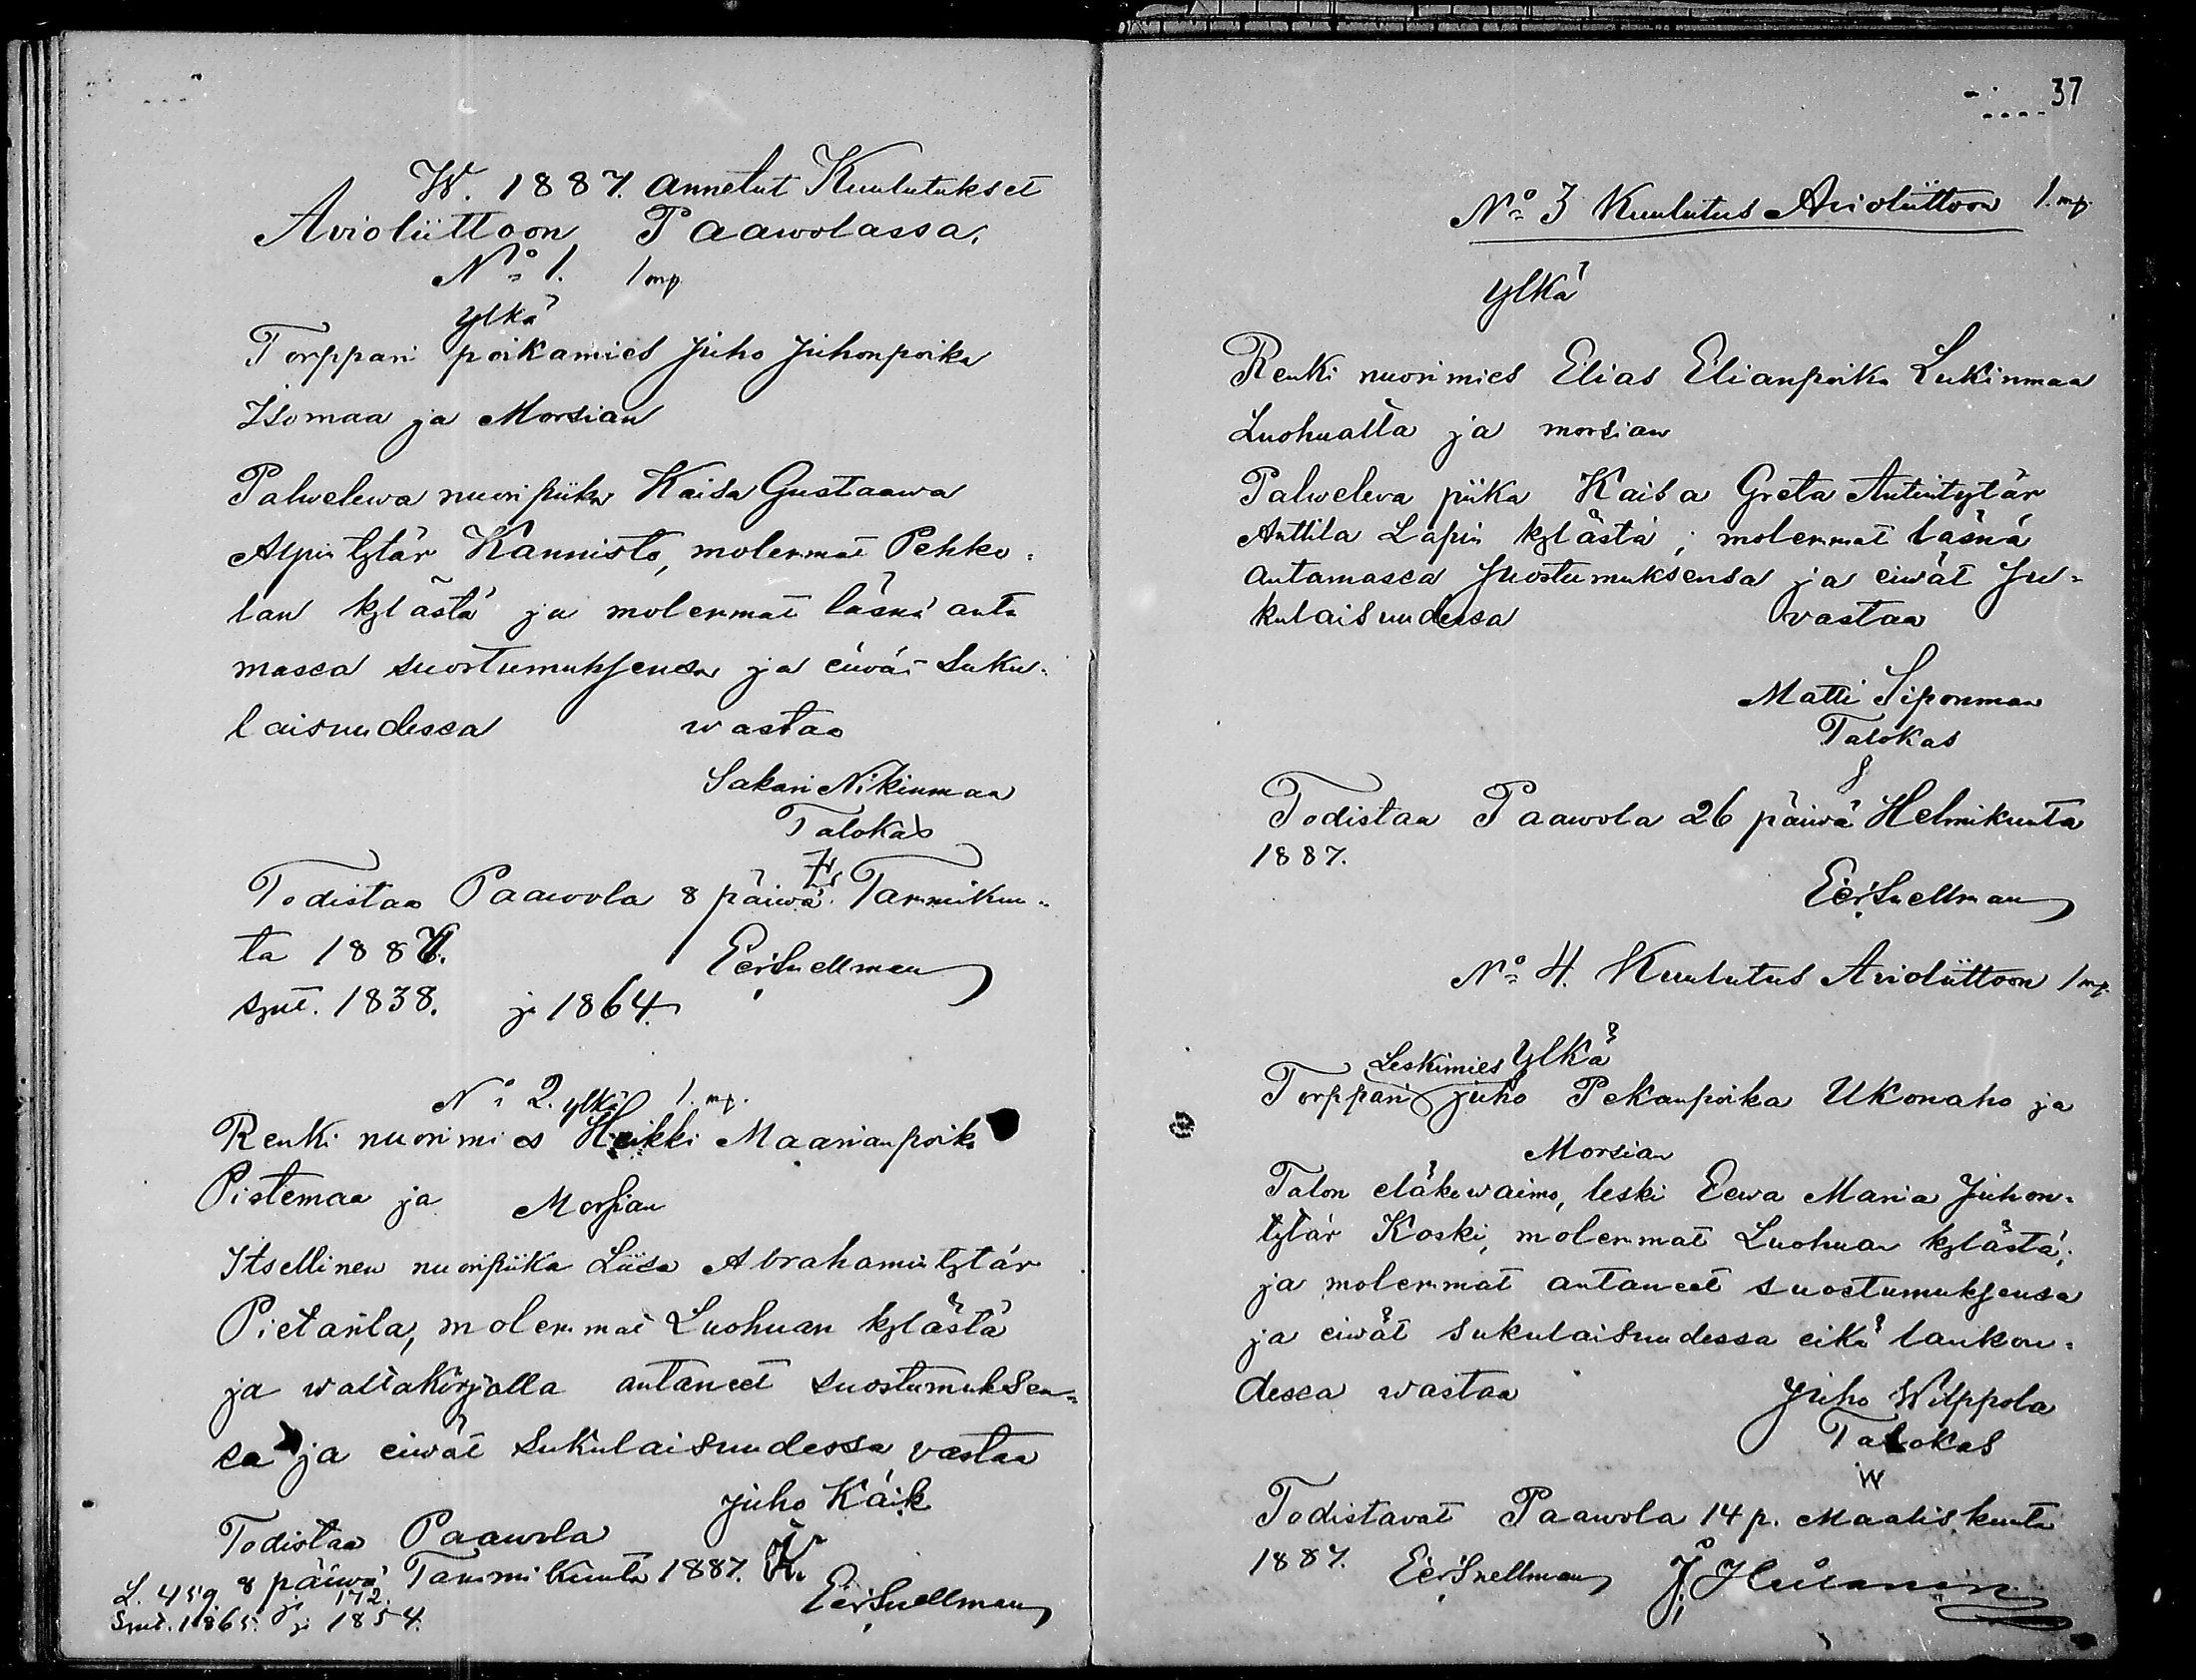 W. 1887. annetut Kuulutukset
Avioliittoon Paawolassa.
No 1. 1 mp.
ylkä
Torppari poikamies Juho Juhonpoika
Isomaa ja Morsian
Palwelewa nuori piika Kaisa Gustaawa
Apintytär Kannisto, molemmat Pehko-
lan kylästä ja molemmat läsnä anta
massa suostumuksensa ja eiwät suku-
laisuudessa wastaa
Sakari Nikinmaa
Talokas
Todistaa Paawola 8 päiwä Tammikuu-
ta 1887.
EerSnellman
synt. 1838. ja 1864.
No 2. ylkä 1. mp.
Renki nuorimies Heikki Maarianpoika
Pistemaa ja Morsian
Itsellinen nuoripiika Liisa Abrahamintytär
Pietarila, molemmat Luohuan kylästä
ja waltakirjalla antaneet suostumuksen-
sa ja eiwät sukulaisuudessa vastaa
Juho Käik
Todistaa Paawola
8 päiwä Tammikuuta 1887. K.
L. 459. ja 172.
EerSnellman
Synt. 1865. ja 1854.
37
No 3 Kuulutus Avioliittoon 1. mp.
ylkä
Renki nuorimies Elias Elianpoika Lukinmaa
Luohualta ja morsian
Palweleva piika Kaisa Greta Antintytär
Anttila Lapin kylästä; molemmat läsnä
antamassa suostumuksensa ja eiwät su-
kulaisuudessa vastaa
Matti Siponmaa
Talokas
Todistaa Paawola 26 päiwä Helmikuuta
1887.
EerSnellman
No 4. Kuulutus Avioliittoon 1 mp.
Leskimies ylkä
Torppari Juho Pekanpoika Ukonaho ja
Morsian
Talon eläkewaimo, leski Eewa Maria Juhon-
tytär Koski, molemmat Luohuan kylästä;
ja molemmat antaneet suostumuksensa
ja eiwät sukulaisuudessa eikä lankou-
dessa wastaa
Juho Wilppola
Talokas
W
Todistavat Paawola 14 p. Maaliskuuta
1887. EerSnellman